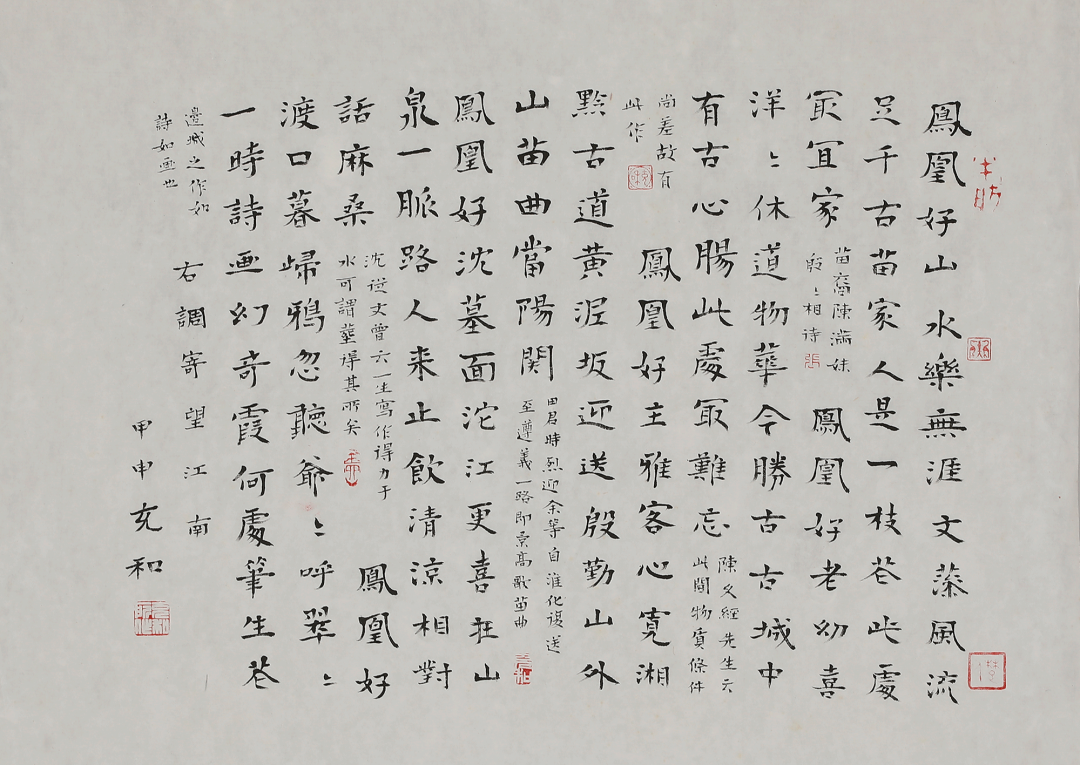 鳳凰好山水樂無涯文藻風流
足千古苗家人是一枝花此處
冣宜家
苗裔陳滿妹
殷〻相待
鳳凰好老幼喜
洋〻休道物華今勝古古城中
有古心腸此處冣難忘
陳文經先生云
此間物質條件
尚差故有
此作
鳳凰好主雅客心寬湘
黔古道黄泥坂迎送殷勤山外
山苗曲當陽関
田君時烈迎余等自淮化復送
至遵義一路即景高歌苗曲
鳳凰好沈墓面沱江更喜在山
泉一脈路人来止飲清涼相對
話麻桑
沈從文曾云一生寫作得力于
水可謂葬得其所矣
鳳凰好
渡口暮歸鴉忽聽爺〻呼翠〻
一時詩画幻奇霞何處筆生花
邊城之作如
詩如画也
右調寄望江南
甲申充和